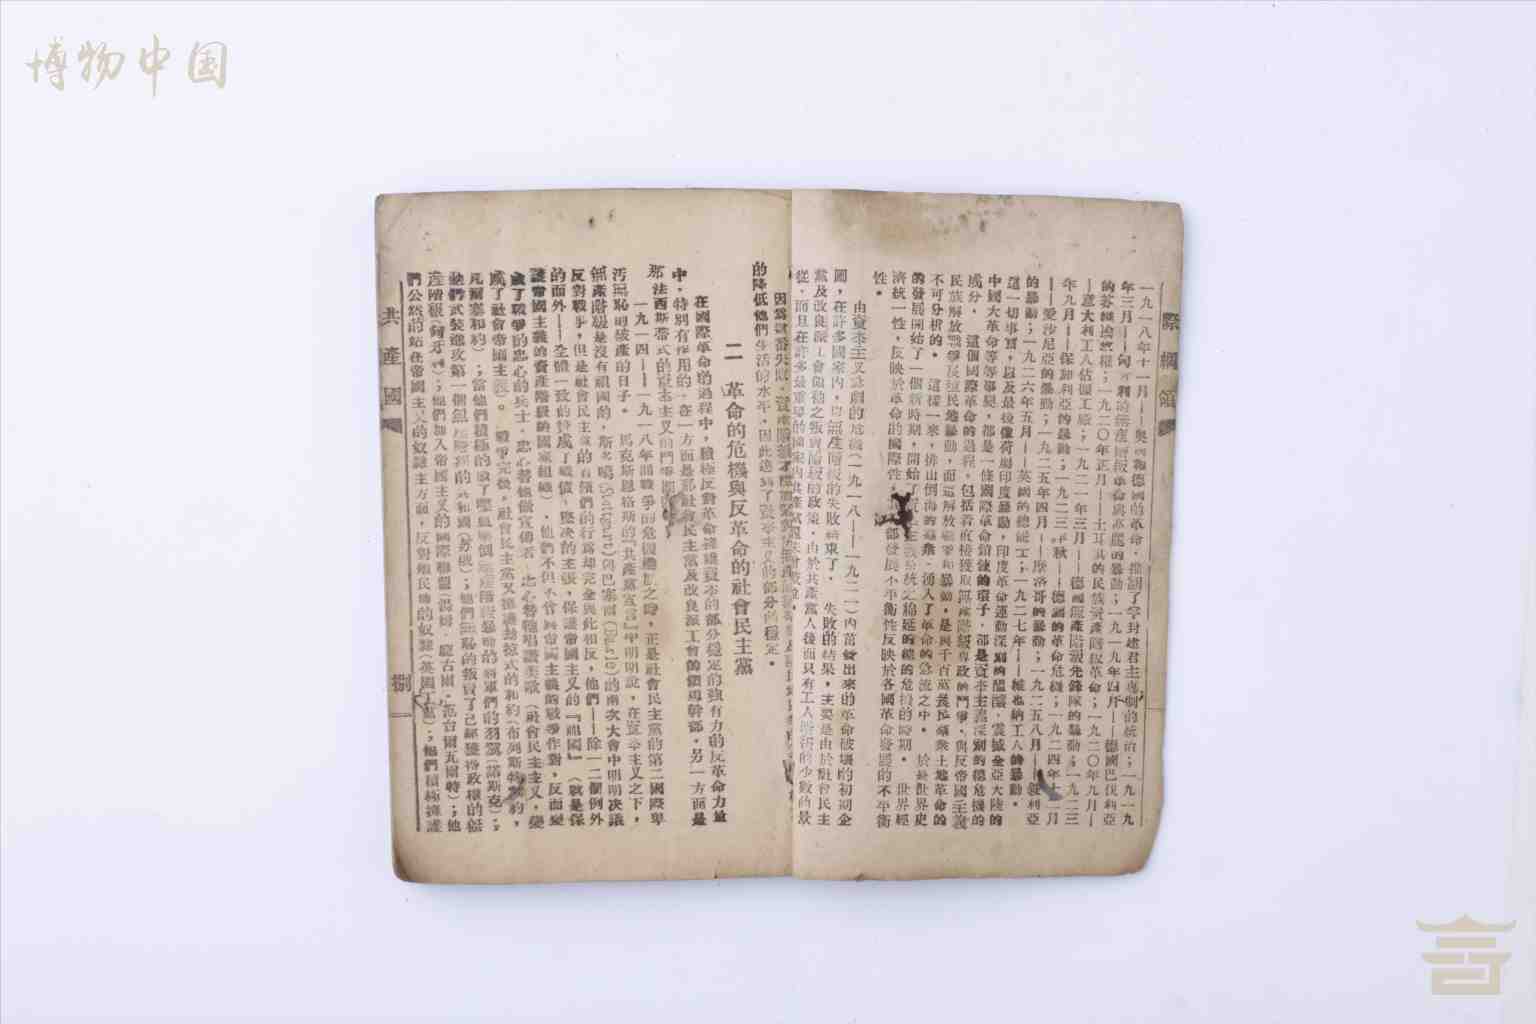 博物中国
際綱領
一九一八年十一月——奧國和德國的革命,推翻了半封建君主專制的統治;一九一九
年三月——匈牙利的無產階級革命與高麗的暴動;一九一九年四月——德國巴伐利亞
的蘇維埃政權;一九二〇年正月——土耳其的民族資產階級革命;一九二〇年九月—
—意大利工人佔領工廠;一九二一年三月——德國無產階級先鋒隊的暴動;一九二三
年九月——保加利亞的暴動;一九二三年秋——德國的革命危機;一九二四年十二月
——愛沙尼亞的暴動;一九二五年四月——摩洛哥的暴動;一九二五八月——敍利亞
的暴動;一九二六年五月——英國的總罷工;一九二七年——維也納工人的暴動。
這一切事實,以及最後像荷屬印度暴動,印度革命運動深刻的醞釀,震撼全亞大陸的
中國大革命等等事變,都是一條國際革命鎖鍊的環子,都是資本主義深刻的總危機的
成分。 這個國際革命的過程,包括着直接獲取無產階級專政的鬥爭,與反帝國主義
民族解放戰爭及殖民地暴動,而這解放戰爭和暴動,是與千百萬農民羣衆土地革命的
不可分析的。 這樣一來,排山倒海的羣衆,湧入了革命的急流之中。 於是世界史
的發展開始了一個新時期,開始了資本主義系統之綿延的總的危機的時期。 世界經
濟統一性,反映於革命的國際性,部發展不平衡性反映於各國革命發展的不平衡
性。
由資本主義急劇的危機(一九一八——一九二一)內當發出來的革命破壞的初期企
圖,在許多國家內,以無產階級的失敗結束了。 失敗的結果,主要是由於社會民主
黨及改良派工會領袖之叛賣階級的政策,由於共產黨人後面只有工人階級的少數的景
從,而且在許多最重要的國家內共產黨還未曾成立。
因爲這番失敗,
的降低他們生活的水平,因此達到了資本主義的部分的穩定。
二 革命的危機與反革命的社會民主黨
在國際革命的過程中,積極反對革命擁護資本的部分穩定的強有力的反革命力量
中,特別有作用的,在一方面是那社會民主黨及改良派工會的領導幹部,另一方面是
那法西斯蒂式的資本主義的鬥爭團
一九一四——一九一八年間戰爭的危機機展之時,正是社會民主黨的第二國際卑
汚無恥的破產的日子。 馬克斯恩格斯的『共產黨宣言』中明明說,在資本主義之下,
無產階級是沒有祖國的,斯多噶(Stuttgart)與巴塞爾(Basle)的兩次大會中明明決議
反對戰爭,但是社會民主黨的首領們的行爲却完全與此相反,他們——除一二個例外
的而外——全體一致的贊成了戰債,堅決的主張,保護帝國主義的『祖國』(就是保
護帝國主義的資產階級的國家組織),他們不但不曾與帝國主義的戰爭作對,反而變
成了戰爭的忠心的兵士,忠心替他做宣傳者,忠心替他唱讚美歌(社會民主主义,變
成了社會帝國主義)。 戰爭完後,社會民主黨又擁護刼掠式的和約(布列斯特和約,
凡爾塞和約);當他們積極的做了壓血壓倒無產階級暴動的將軍們的羽翼(諾斯克);
他們武裝進攻第一個無產階級的共和國(蘇俄);他們無恥的叛賣了已經獲得政權的無
產階級(匈牙利);他們加入帝國主义的國際聯盟(湯姆,龐古爾,范台爾瓦爾特);他
們公然的站在帝國主义的奴隸主方面,反對殖民地的奴隸(英國工黨);他們積極擁護
共產國
捌